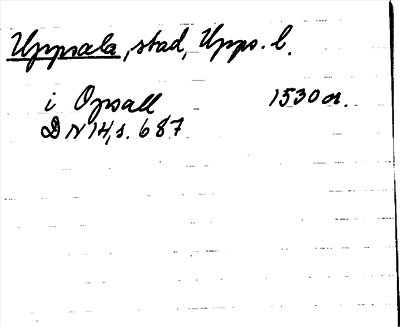 Uppsala, stad, Upps. l.
i Opsall 1530 or.
DN 14, s. 687